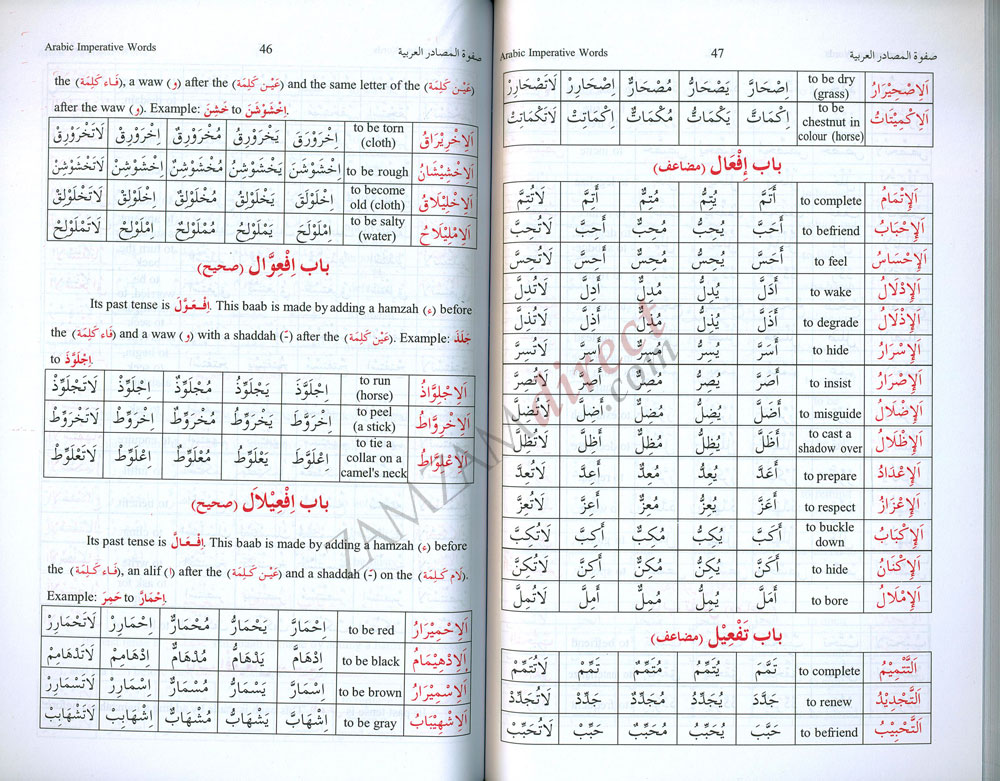 Arabic Imperative Words 46 صفوة المصادر العربية
the (فَاء كَلِمَة), a waw (و) after the (عَيْن كَلِمَة) and the same letter of the (عَيْن كَلِمَة)
after the waw (و). Example: خَشِنَ to اِخْشَوْشَنَ.
اَلِاخْرِيْرَاقُ to be torn (cloth) اِخْرَوْرَقَ يَخْرَوْرِقُ مُخْرَوْرِقٌ اِخْرَوْرِقْ لَاتَخْرَوْرِقْ
اَلِاخْشِيْشَانُ to be rough اِخْشَوْشَنَ يَخْشَوْشِنُ مُخْشَوْشِنٌ اِخْشَوْشِنْ لَاتَخْشَوْشِنْ
اَلِاخْلِيْلَاقُ to become old (cloth) اِخْلَوْلَقَ يَخْلَوْلِقُ مُخْلَوْلِقٌ اِخْلَوْلِقْ لَاتَخْلَوْلِقْ
اَلِامْلِيْلَاحُ to be salty (water) اِمْلَوْلَحَ يَمْلَوْلِحُ مُمْلَوْلِحٌ اِمْلَوْلِحْ لَاتَمْلَوْلِحْ
باب اِفْعِوَّال (صحيح)
Its past tense is اِفْعَوَّلَ. This baab is made by adding a hamzah (ء) before
the (فَاء كَلِمَة) and a waw (و) with a shaddah (ّ) after the (عَيْن كَلِمَة). Example: جَلَذَ
to اِجْلَوَّذَ.
اَلِاجْلِوَّاذُ to run (horse) اِجْلَوَّذَ يَجْلَوِّذُ مُجْلَوِّذٌ اِجْلَوِّذْ لَاتَجْلَوِّذْ
اَلِاخْرِوَّاطُ to peel (a stick) اِخْرَوَّطَ يَخْرَوِّطُ مُخْرَوِّطٌ اِخْرَوِّطْ لَاتَخْرَوِّطْ
اَلِاعْلِوَّاطُ to tie a collar on a camel's neck اِعْلَوَّطَ يَعْلَوِّطُ مُعْلَوِّطٌ اِعْلَوِّطْ لَاتَعْلَوِّطْ
باب اِفْعِيْلَال (صحيح)
Its past tense is اِفْعَالَّ. This baab is made by adding a hamzah (ء) before
the (فَاء كَلِمَة), an alif (ا) after the (عَيْن كَلِمَة) and a shaddah (ّ) on the (لَام كَلِمَة).
Example: حَمِرَ to اِحْمَارَّ.
اَلِاحْمِيْرَارُ to be red اِحْمَارَّ يَحْمَارُّ مُحْمَارٌّ اِحْمَارِرْ لَاتَحْمَارِرْ
اَلِادْهِيْمَامُ to be black اِدْهَامَّ يَدْهَامُّ مُدْهَامٌّ اِدْهَامِمْ لَاتَدْهَامِمْ
اَلِاسْمِيْرَارُ to be brown اِسْمَارَّ يَسْمَارُّ مُسْمَارٌّ اِسْمَارِرْ لَاتَسْمَارِرْ
اَلِاشْهِيْبَابُ to be gray اِشْهَابَّ يَشْهَابُّ مُشْهَابٌّ اِشْهَابِبْ لَاتَشْهَابِبْ
Arabic Imperative Words 47 صفوة المصادر العربية
اَلِاصْحِيْرَارُ to be dry (grass) اِصْحَارَّ يَصْحَارُّ مُصْحَارٌّ اِصْحَارِرْ لَاتَصْحَارِرْ
اَلِاكْمِيْتَاتُ to be chestnut in colour (horse) اِكْمَاتَّ يَكْمَاتُّ مُكْمَاتٌّ اِكْمَاتِتْ لَاتَكْمَاتِتْ
باب اِفْعَال (مضاعف)
اَلْاِتْمَامُ to complete أَتَمَّ يُتِمُّ مُتِمٌّ أَتِمَّ لَاتُتِمَّ
اَلْاِحْبَابُ to befriend أَحَبَّ يُحِبُّ مُحِبٌّ أَحِبَّ لَاتُحِبَّ
اَلْإِحْسَاسُ to feel أَحَسَّ يُحِسُّ مُحِسٌّ أَحِسَّ لَاتُحِسَّ
اَلْإِدْلَالُ to wake أَدَلَّ يُدِلُّ مُدِلٌّ أَدِلَّ لَاتُدِلَّ
اَلْإِذْلَالُ to degrade أَذَلَّ يُذِلُّ مُذِلٌّ أَذِلَّ لَاتُذِلَّ
اَلْإِسْرَارُ to hide أَسَرَّ يُسِرُّ مُسِرٌّ أَسِرَّ لَاتُسِرَّ
اَلْإِصْرَارُ to insist أَصَرَّ يُصِرُّ مُصِرٌّ أَصِرَّ لَاتُصِرَّ
اَلْإِضْلَالُ to misguide أَضَلَّ يُضِلُّ مُضِلٌّ أَضِلَّ لَاتُضِلَّ
اَلْإِظْلَالُ to cast a shadow over أَظَلَّ يُظِلُّ مُظِلٌّ أَظِلَّ لَاتُظِلَّ
اَلْإِعْدَادُ to prepare أَعَدَّ يُعِدُّ مُعِدٌّ أَعِدَّ لَاتُعِدَّ
اَلْإِعْزَازُ to respect أَعَزَّ يُعِزُّ مُعِزٌّ أَعِزَّ لَاتُعِزَّ
اَلْإِكْبَابُ to buckle down أَكَبَّ يُكِبُّ مُكِبٌّ أَكِبَّ لَاتُكِبَّ
اَلْإِكْنَانُ to hide أَكَنَّ يُكِنُّ مُكِنٌّ أَكِنَّ لَاتُكِنَّ
اَلْإِمْلَالُ to bore أَمَلَّ يُمِلُّ مُمِلٌّ أَمِلَّ لَاتُمِلَّ
باب تَفْعِيْل (مضاعف)
اَلتَّتْمِيْمُ to complete تَمَّمَ يُتَمِّمُ مُتَمِّمٌ تَمِّمْ لَاتُتَمِّمْ
اَلتَّجْدِيْدُ to renew جَدَّدَ يُجَدِّدُ مُجَدِّدٌ جَدِّدْ لَاتُجَدِّدْ
اَلتَّحْبِيْبُ to befriend حَبَّبَ يُحَبِّبُ مُحَبِّبٌ حَبِّبْ لَاتُحَبِّبْ
ZAMZAMdirect.com